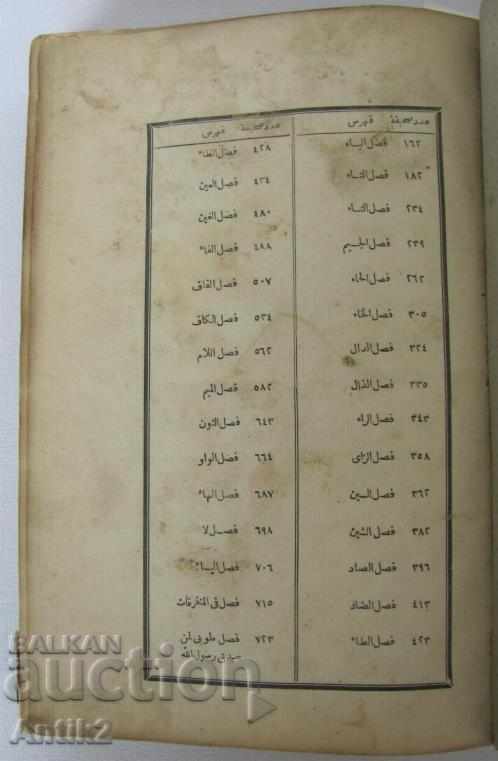 عدد صحيفة فهرس
١٦٢ فصل الباء
١٨٢ فصل التاء
٢٣٤ فصل الثاء
٢٣٩ فصل الجيم
٢٦٢ فصل الحاء
٣٠٥ فصل الخاء
٣٢٤ فصل الدال
٣٣٥ فصل الذال
٣٤٣ فصل الراء
٣٥٨ فصل الزاى
٣٦٢ فصل السين
٣٨٢ فصل الشين
٣٩٦ فصل الصاد
٤١٣ فصل الضاد
٤٢٣ فصل الطاء
عدد صحيفة فهرس
٤٢٨ فصل الظاء
٤٣٤ فصل العين
٤٨٠ فصل الغين
٤٨٨ فصل الفاء
٥٠٧ فصل القاف
٥٣٤ فصل الكاف
٥٦٢ فصل اللام
٥٨٢ فصل الميم
٦٤٣ فصل النون
٦٦٤ فصل الواو
٦٨٧ فصل الهاء
٦٩٨ فصل لا
٧٠٦ فصل الياء
٧١٥ فصل فى المتفرقات
٧٢٣ فصل طوبى لمن
رسول الله
BALKAN
auction
Antik2